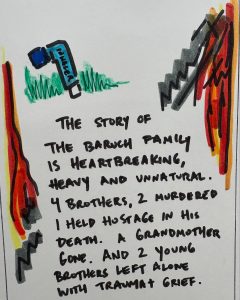 THE STORY OF
THE BARUCH FAMILY
IS HEARTBREAKING,
HEAVY AND UNNATURAL.
4 BROTHERS, 2 MURDERED
1 HELD HOSTAGE IN HIS
DEATH. A GRANDMOTHER
GONE. AND 2 YOUNG
BROTHERS LEFT ALONE
WITH TRAUMA + GRIEF.